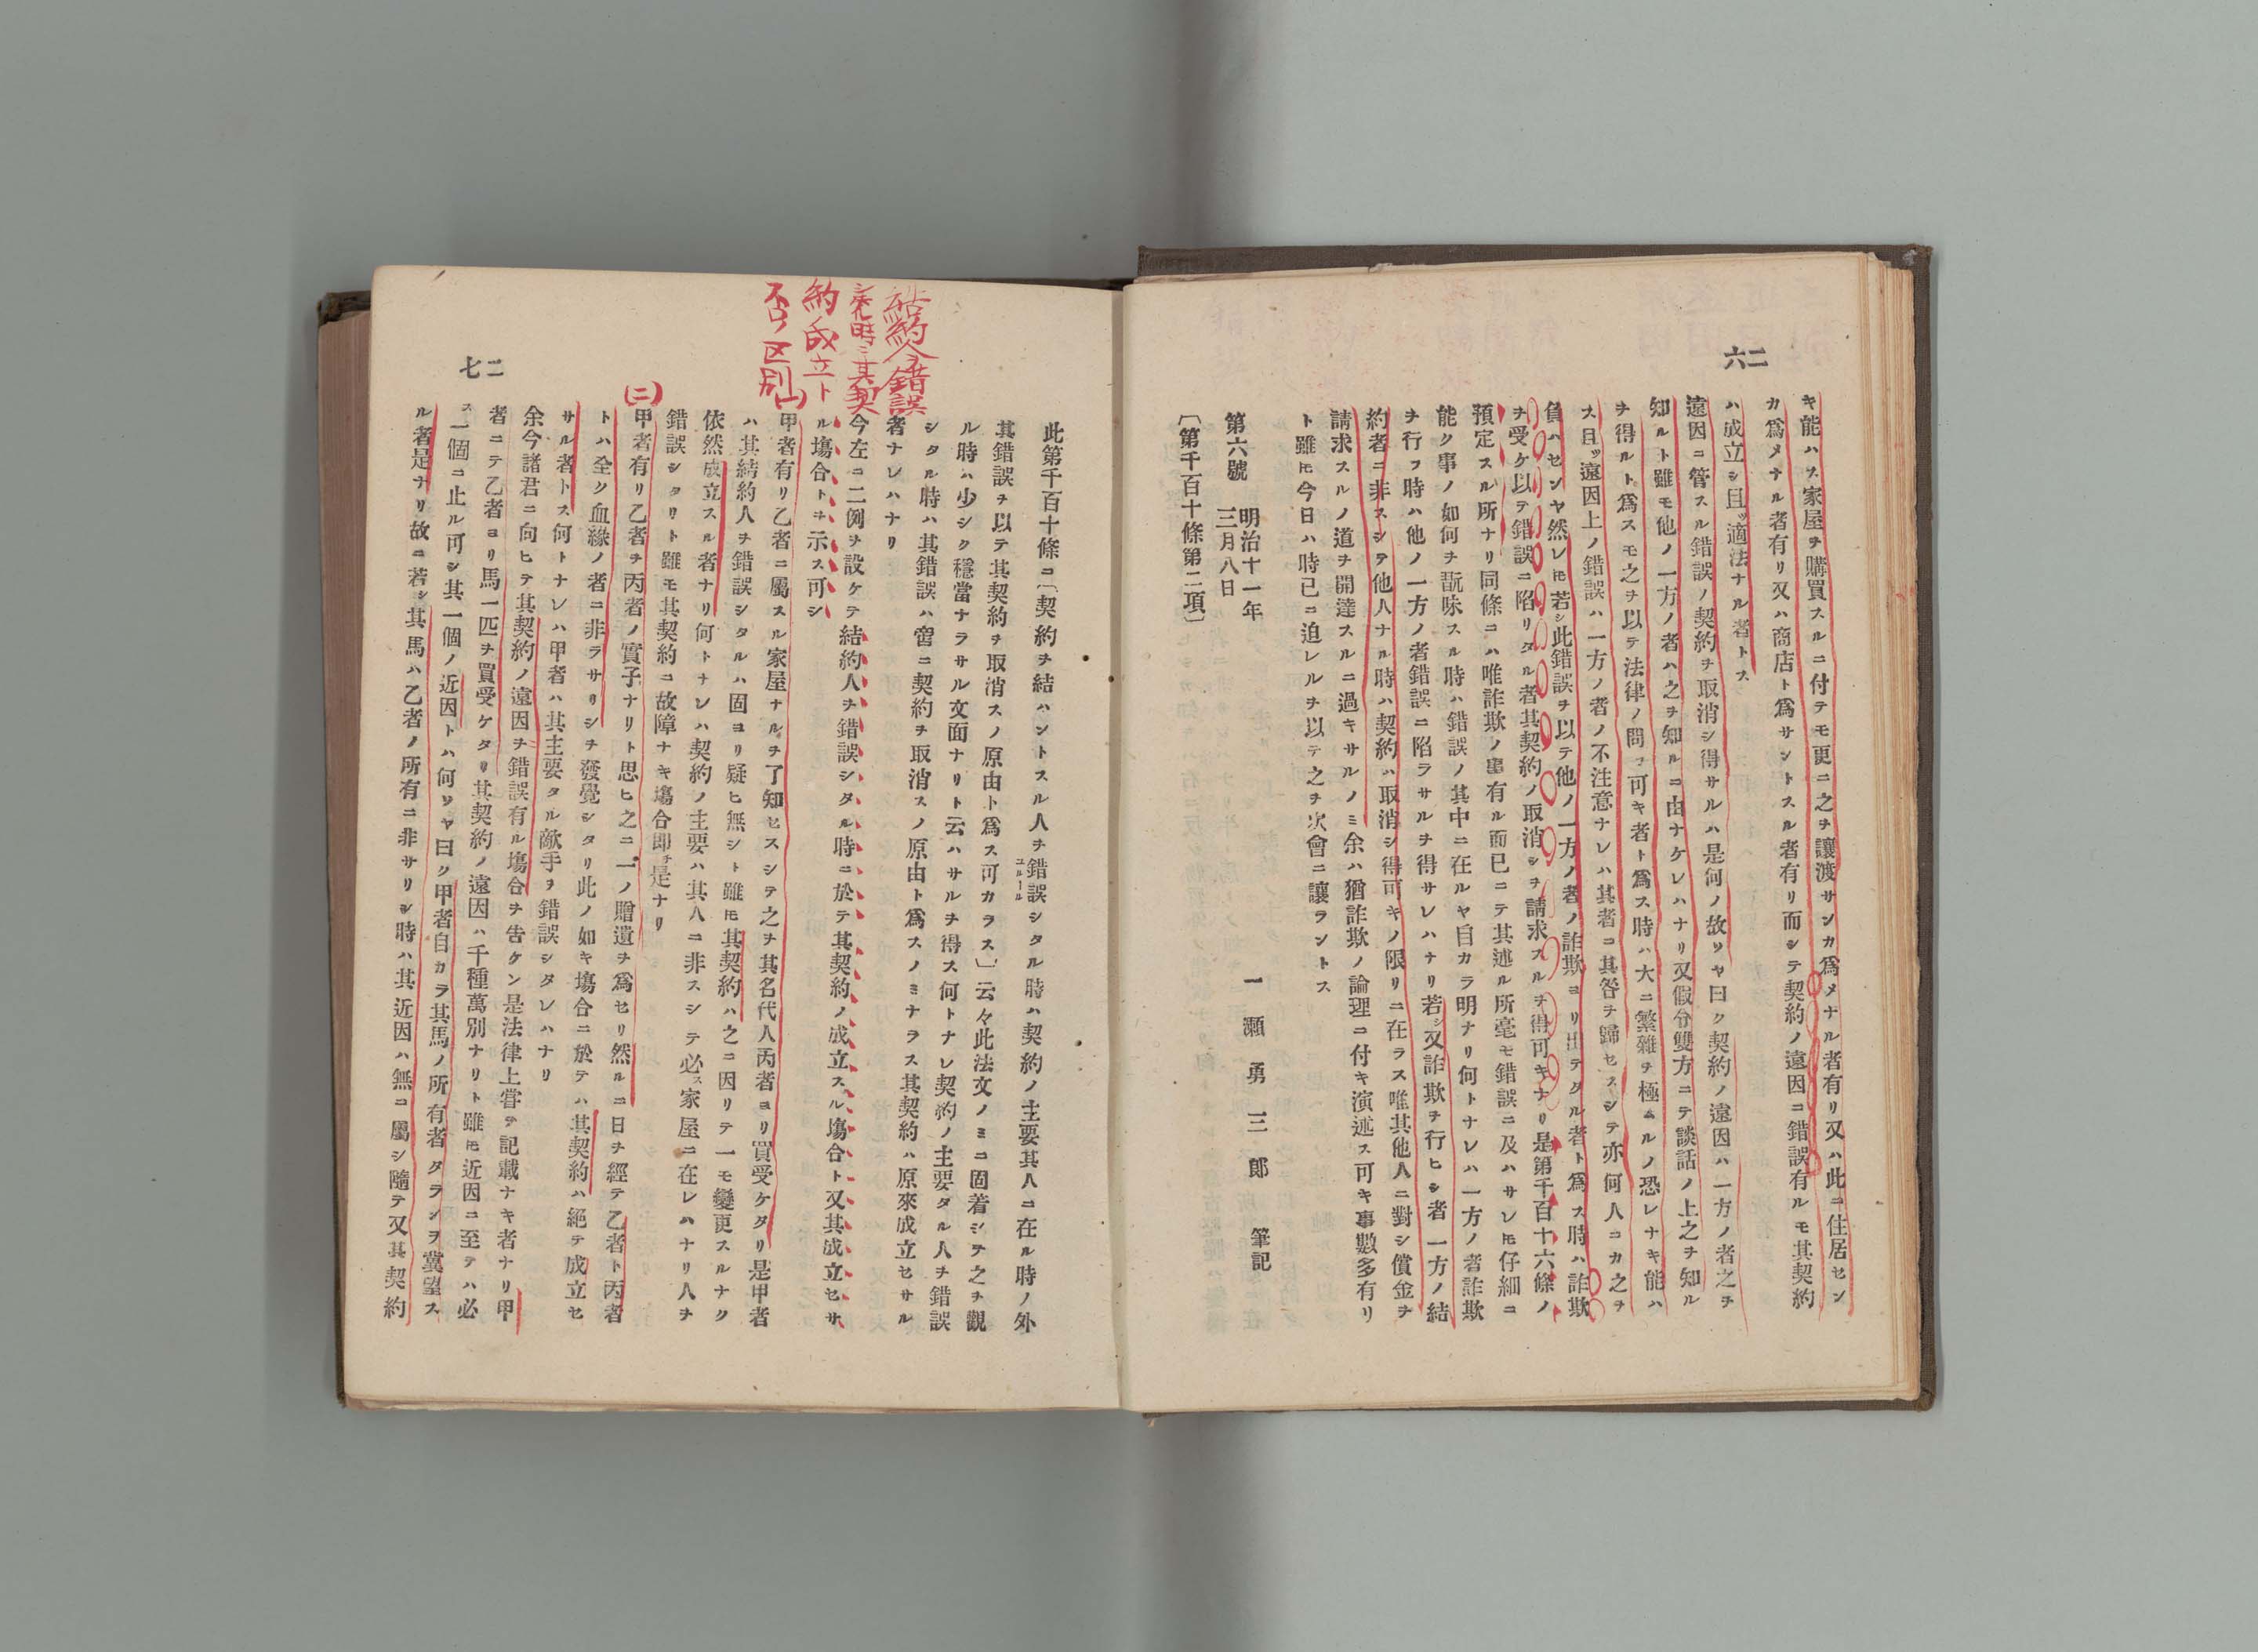 二六
キ能ハス家屋ヲ購買スルニ付テモ更ニ之ヲ讓渡サンカ爲メナル者有リ又ハ此ニ住居セン
カ爲メナル者有リ又ハ商店ト爲サントスル者有リ而シテ契約ノ遠因ニ錯誤有ルモ其契約
ハ成立シ且ツ適法ナル者トス
遠因ニ管スル錯誤ノ契約ヲ取消シ得サルハ是何ノ故ソヤ曰ク契約ノ遠因ハ一方ノ者之ヲ
知ルト雖モ他ノ一方ノ者ハ之ヲ知ルニ由ナケレハナリ又假令雙方ニテ談話ノ上之ヲ知ル
ヲ得ルト爲スモ之ヲ以テ法律ノ問フ可キ者ト爲ス時ハ大ニ繁雜ヲ極ムルノ恐レナキ能ハ
ス且ツ遠因上ノ錯誤ハ一方ノ者ノ不注意ナレハ其者ニ其咎ヲ歸セスシテ亦何人ニカ之ヲ
負ハセンヤ然レ𪜈若シ此錯誤ヲ以テ他ノ一方ノ者ノ詐欺ヨリ出テタル者ト爲ス時ハ詐欺
ヲ受ケ以テ錯誤ニ陷リタル者其契約ノ取消シヲ請求スルヲ得可キナリ是第千百十六條ノ
預定スル所ナリ同條ニハ唯詐欺ノ事有ル而已ニテ其述ル所毫モ錯誤ニ及ハサレ𪜈仔細ニ
能ク事ノ如何ヲ翫味スル時ハ錯誤ノ其中ニ在ルヤ自カラ明ナリ何トナレハ一方ノ者詐欺
ヲ行フ時ハ他ノ一方ノ者錯誤ニ陷ラサルヲ得サレハナリ若シ又詐欺ヲ行ヒシ者一方ノ結
約者ニ非スシテ他人ナル時ハ契約ハ取消シ得可キノ限リニ在ラス唯其他人ニ對シ償金ヲ
請求スルノ道ヲ開達スルニ過キサルノミ余ハ猶詐欺ノ論理ニ付キ演述ス可キ事數多有リ
ト雖𪜈今日ハ時已ニ迫レルヲ以テ之ヲ次會ニ讓ラントス
第六號 明治十一年三月八日 一瀬勇三郎 筆記
〔第千百十條第二項〕
二七
結約人ヲ錯誤
シタル時ニ其契
約成立ト
否ノ区別
此第千百十條ニ「契約ヲ結ハントスル人ヲ錯誤シタル時ハ契約ノ主要其人ニ在ル時ノ外
其錯誤ヲ以テ其契約ヲ取消スノ原由ト爲ス可カラス」云々此法文ノミニ固着シテ之ヲ觀
ル時ハ少シク穩當ナラサル文面ナリト云ハサルヲ得ス何トナレ契約ノ主要タル人ヲ錯誤
シタル時ハ其錯誤ハ啻ニ契約ヲ取消スノ原由ト爲スノミナラス其契約ハ原來成立セサル
者ナレハナリ
今左ニ二例ヲ設ケテ結約人ヲ錯誤シタル時ニ於テ其契約ノ成立スル塲合ト又其成立セサ
ル塲合トヲ示ス可シ
(一)
甲者有リ乙者ニ屬スル家屋ナルヲ了知セスシテ之ヲ其名代人丙者ヨリ買受ケタリ是甲者
ハ其結約人ヲ錯誤シタルハ固ヨリ疑ヒ無シト雖𪜈其契約ハ之ニ因リテ一モ變更スルナク
依然成立スル者ナリ何トナレハ契約ノ主要ハ其人ニ非スシテ必ス家屋ニ在レハナリ人ヲ
錯誤シタリト雖モ其契約ニ故障ナキ塲合即チ是ナリ
(二)
甲者有リ乙者ヲ丙者ノ實子ナリト思ヒ之ニ一ノ贈遺ヲ爲セリ然ルニ日ヲ經テ乙者ト丙者
トハ全ク血緣ノ者ニ非ラサリシヲ發覺シタリ此ノ如キ塲合ニ於テハ其契約ハ絕テ成立セ
サル者トス何トナレハ甲者ハ其主要タル敵手ヲ錯誤シタレハナリ
余今諸君ニ向ヒテ其契約ノ遠因ヲ錯誤有ル塲合ヲ告ケン是法律上嘗テ記載ナキ者ナリ甲
者ニテ乙者ヨリ馬一匹ヲ買受ケタリ其契約ノ遠因ハ千種萬別ナリト雖𪜈近因ニ至テハ必
ス一個ニ止ル可シ其一個ノ近因トハ何ソヤ曰ク甲者自カラ其馬ノ所有者タランヲ冀望ス
ル者是ナリ故ニ若シ其馬ハ乙者ノ所有ニ非サリシ時ハ其近因ハ無ニ屬シ隨テ又其契約